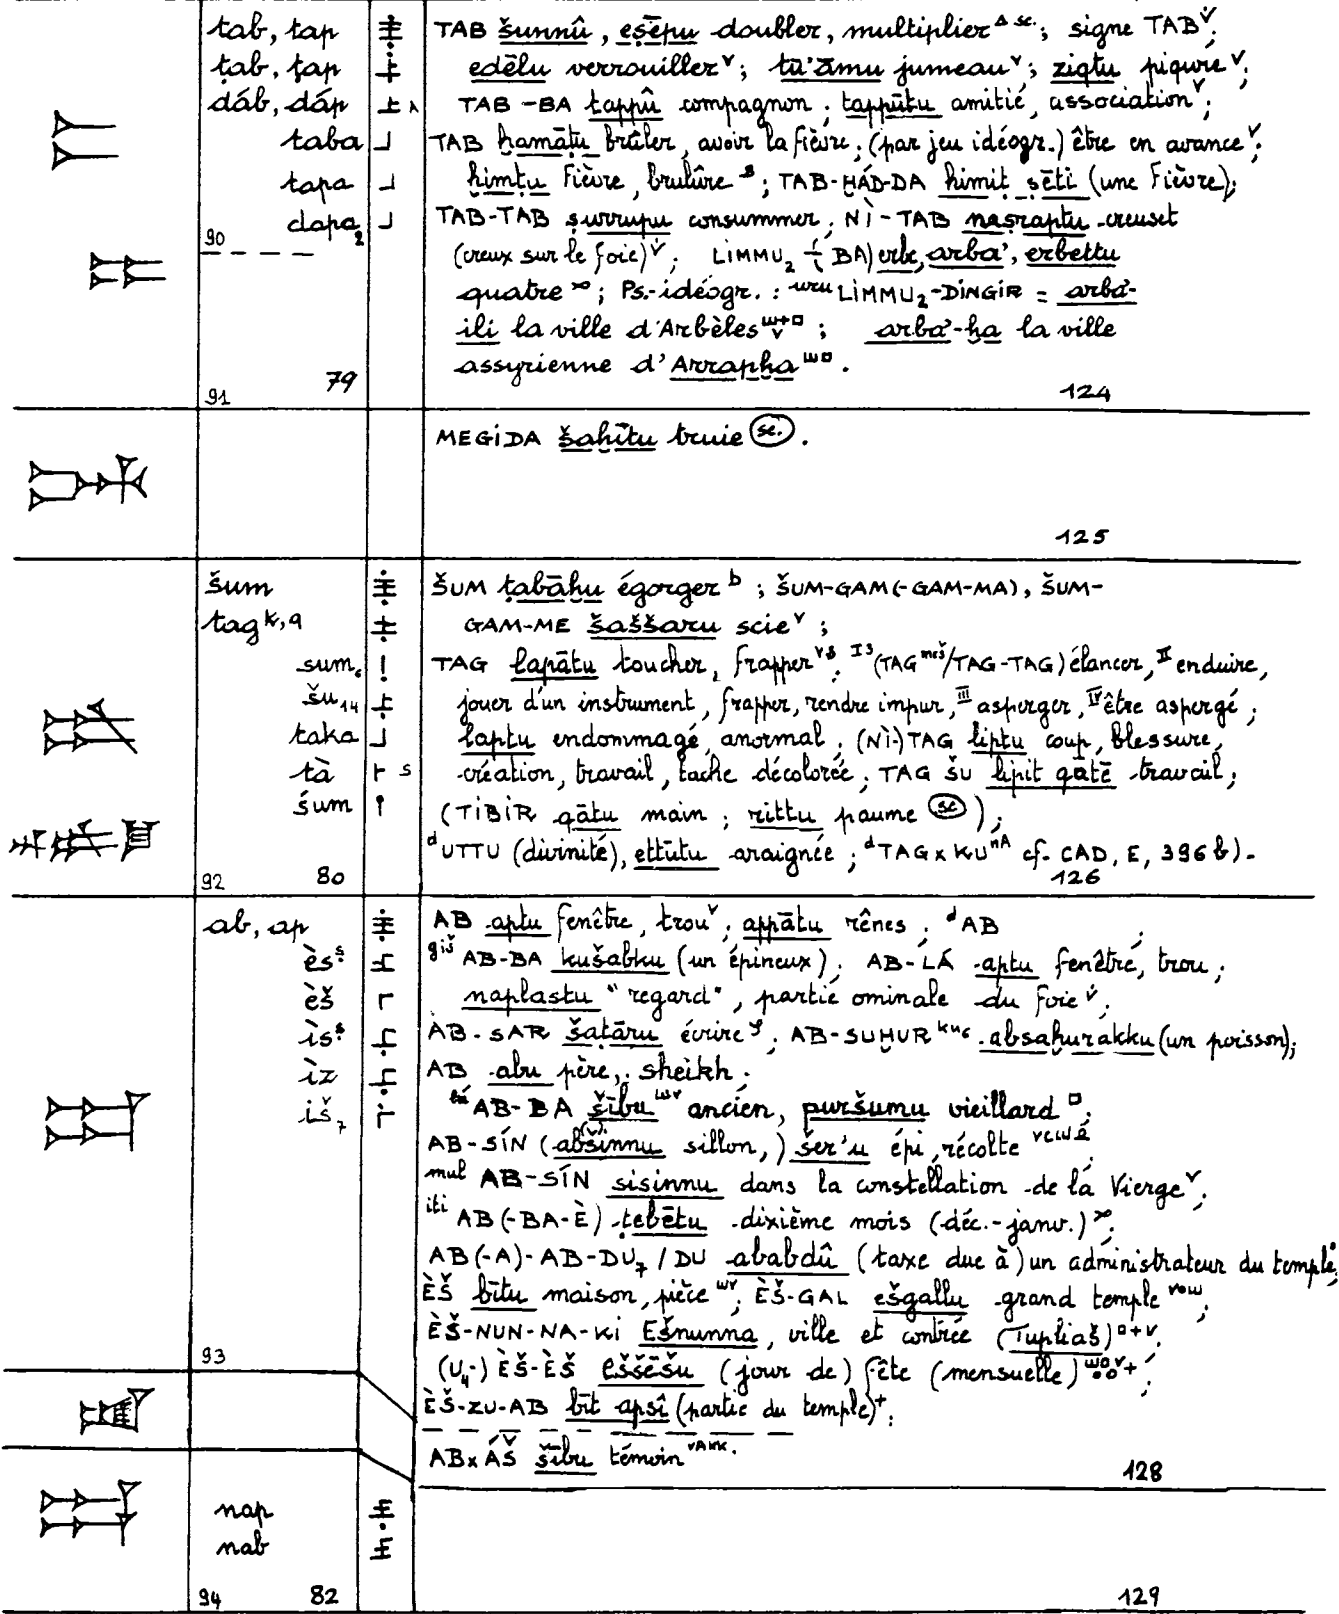 tab, tap TAB šunnû, eṣēpu doubler, multiplier ; signe TAB ;
ṭab, ṭap edēlu verrouiller ; tū'āmu jumeau ; ziqtu piqure ;
dáb, dáp TAB-BA tappû compagnon ; tappūtu amitié, association ;
taba TAB ḫamāṭu brûler, avoir la fièvre ; (par jeu idéogr.) être en avance ;
tapa ḫimṭu fièvre, brulûre ; TAB-ḪÁD-DA ḫimiṭ ṣēti (une fièvre) ;
dapa₂ TAB-TAB ṣurrupu consummer ; NÌ-TAB naṣraptu creuset
90 (creux sur le foie) ; LIMMU₂ (BA) erbe, arba', erbettu
quatre ; Ps.-idéogr. : uru LIMMU₂-DINGIR = arba-
ili la ville d'Arbèles ; arba'-ḫa la ville
79 assyrienne d'Arrapḫa .
91 124
MEGIDA šaḫītu truie sc. .
125
šum ŠUM ṭabāḫu égorger b ; ŠUM-GAM(-GAM-MA), ŠUM-
tag k,q GAM-ME šaššaru scie v ;
sum₆ TAG lapātu toucher, frapper ; I3 (TAG meš/TAG-TAG) élancer, II enduire,
šu₁₄ jouer d'un instrument, frapper, rendre impur, III asperger, IV être aspergé ;
taka laptu endommagé, anormal ; (NÌ-)TAG liptu coup, blessure,
tà s création, travail, tache décolorée ; TAG ŠU lipit qātē travail ;
śum (TIBIR qātu main ; rittu paume sc) ;
d UTTU (divinité), ettūtu araignée ; d TAG×KU nA cf. CAD, E, 396 b).
92 80 126
ab, ap AB aptu fenêtre, trou v ; appātu rênes ; d AB ;
ès giš AB-BA kušabku (un épineux) ; AB-LÁ aptu fenêtre, trou ;
èš naplastu "regard", partie ominale du foie v ;
ìs AB-SAR šaṭāru écrire ; AB-SUḪUR ku₆ absaḫurakku (un poisson) ;
ìz AB abu père, sheikh ;
iš₇ lú AB-BA šību ancien, puršumu vieillard ;
AB-SÍN (abšinnu sillon,) šer'u épi, récolte
mul AB-SÍN sisinnu dans la constellation de la Vierge v ;
iti AB(-BA-È) ṭebētu dixième mois (déc.-janv.) ;
AB(-A)-AB-DU₇/DU ababdû (taxe due à) un administrateur du temple ;
ÈŠ bītu maison, pièce ; ÈŠ-GAL ešgallu grand temple ;
ÈŠ-NUN-NA-KI Ešnunna, ville et contrée (Tupliaš) ;
93 (U₄-) ÈŠ-ÈŠ eššēšu (jour de) fête (mensuelle) ;
ÈŠ-ZU-AB bīt apsî (partie du temple) + ;
AB×ÁŠ šību témoin .
128
nap
nab
94 82 129